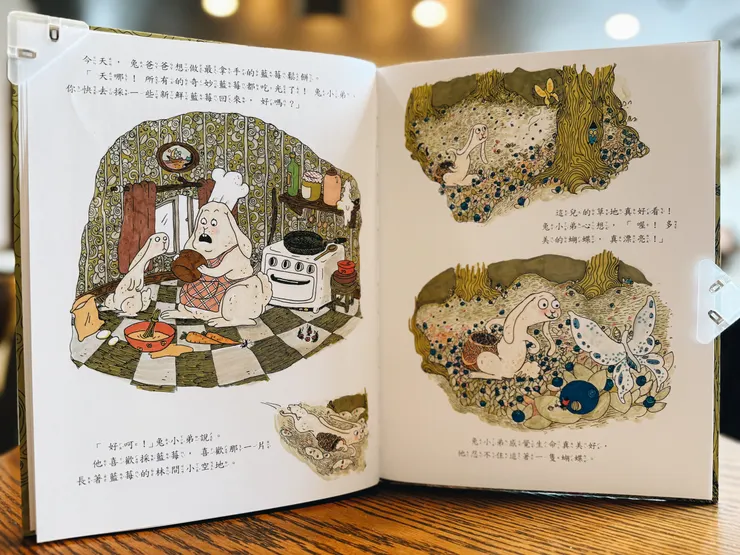 今天，兔爸爸想做最拿手的藍莓鬆餅。
「天哪！所有的奇妙藍莓都吃光了！兔小弟，
你快去採一些新鮮藍莓回來，好嗎？」
「好啊！」兔小弟說。
他喜歡採藍莓，喜歡那一片
長著藍莓的林間小空地。
這兒的草地真好看！
兔小弟心想，「喔！多
美的蝴蝶，真漂亮！」
兔小弟感覺生命真美好，
他忍不住追著一隻蝴蝶。